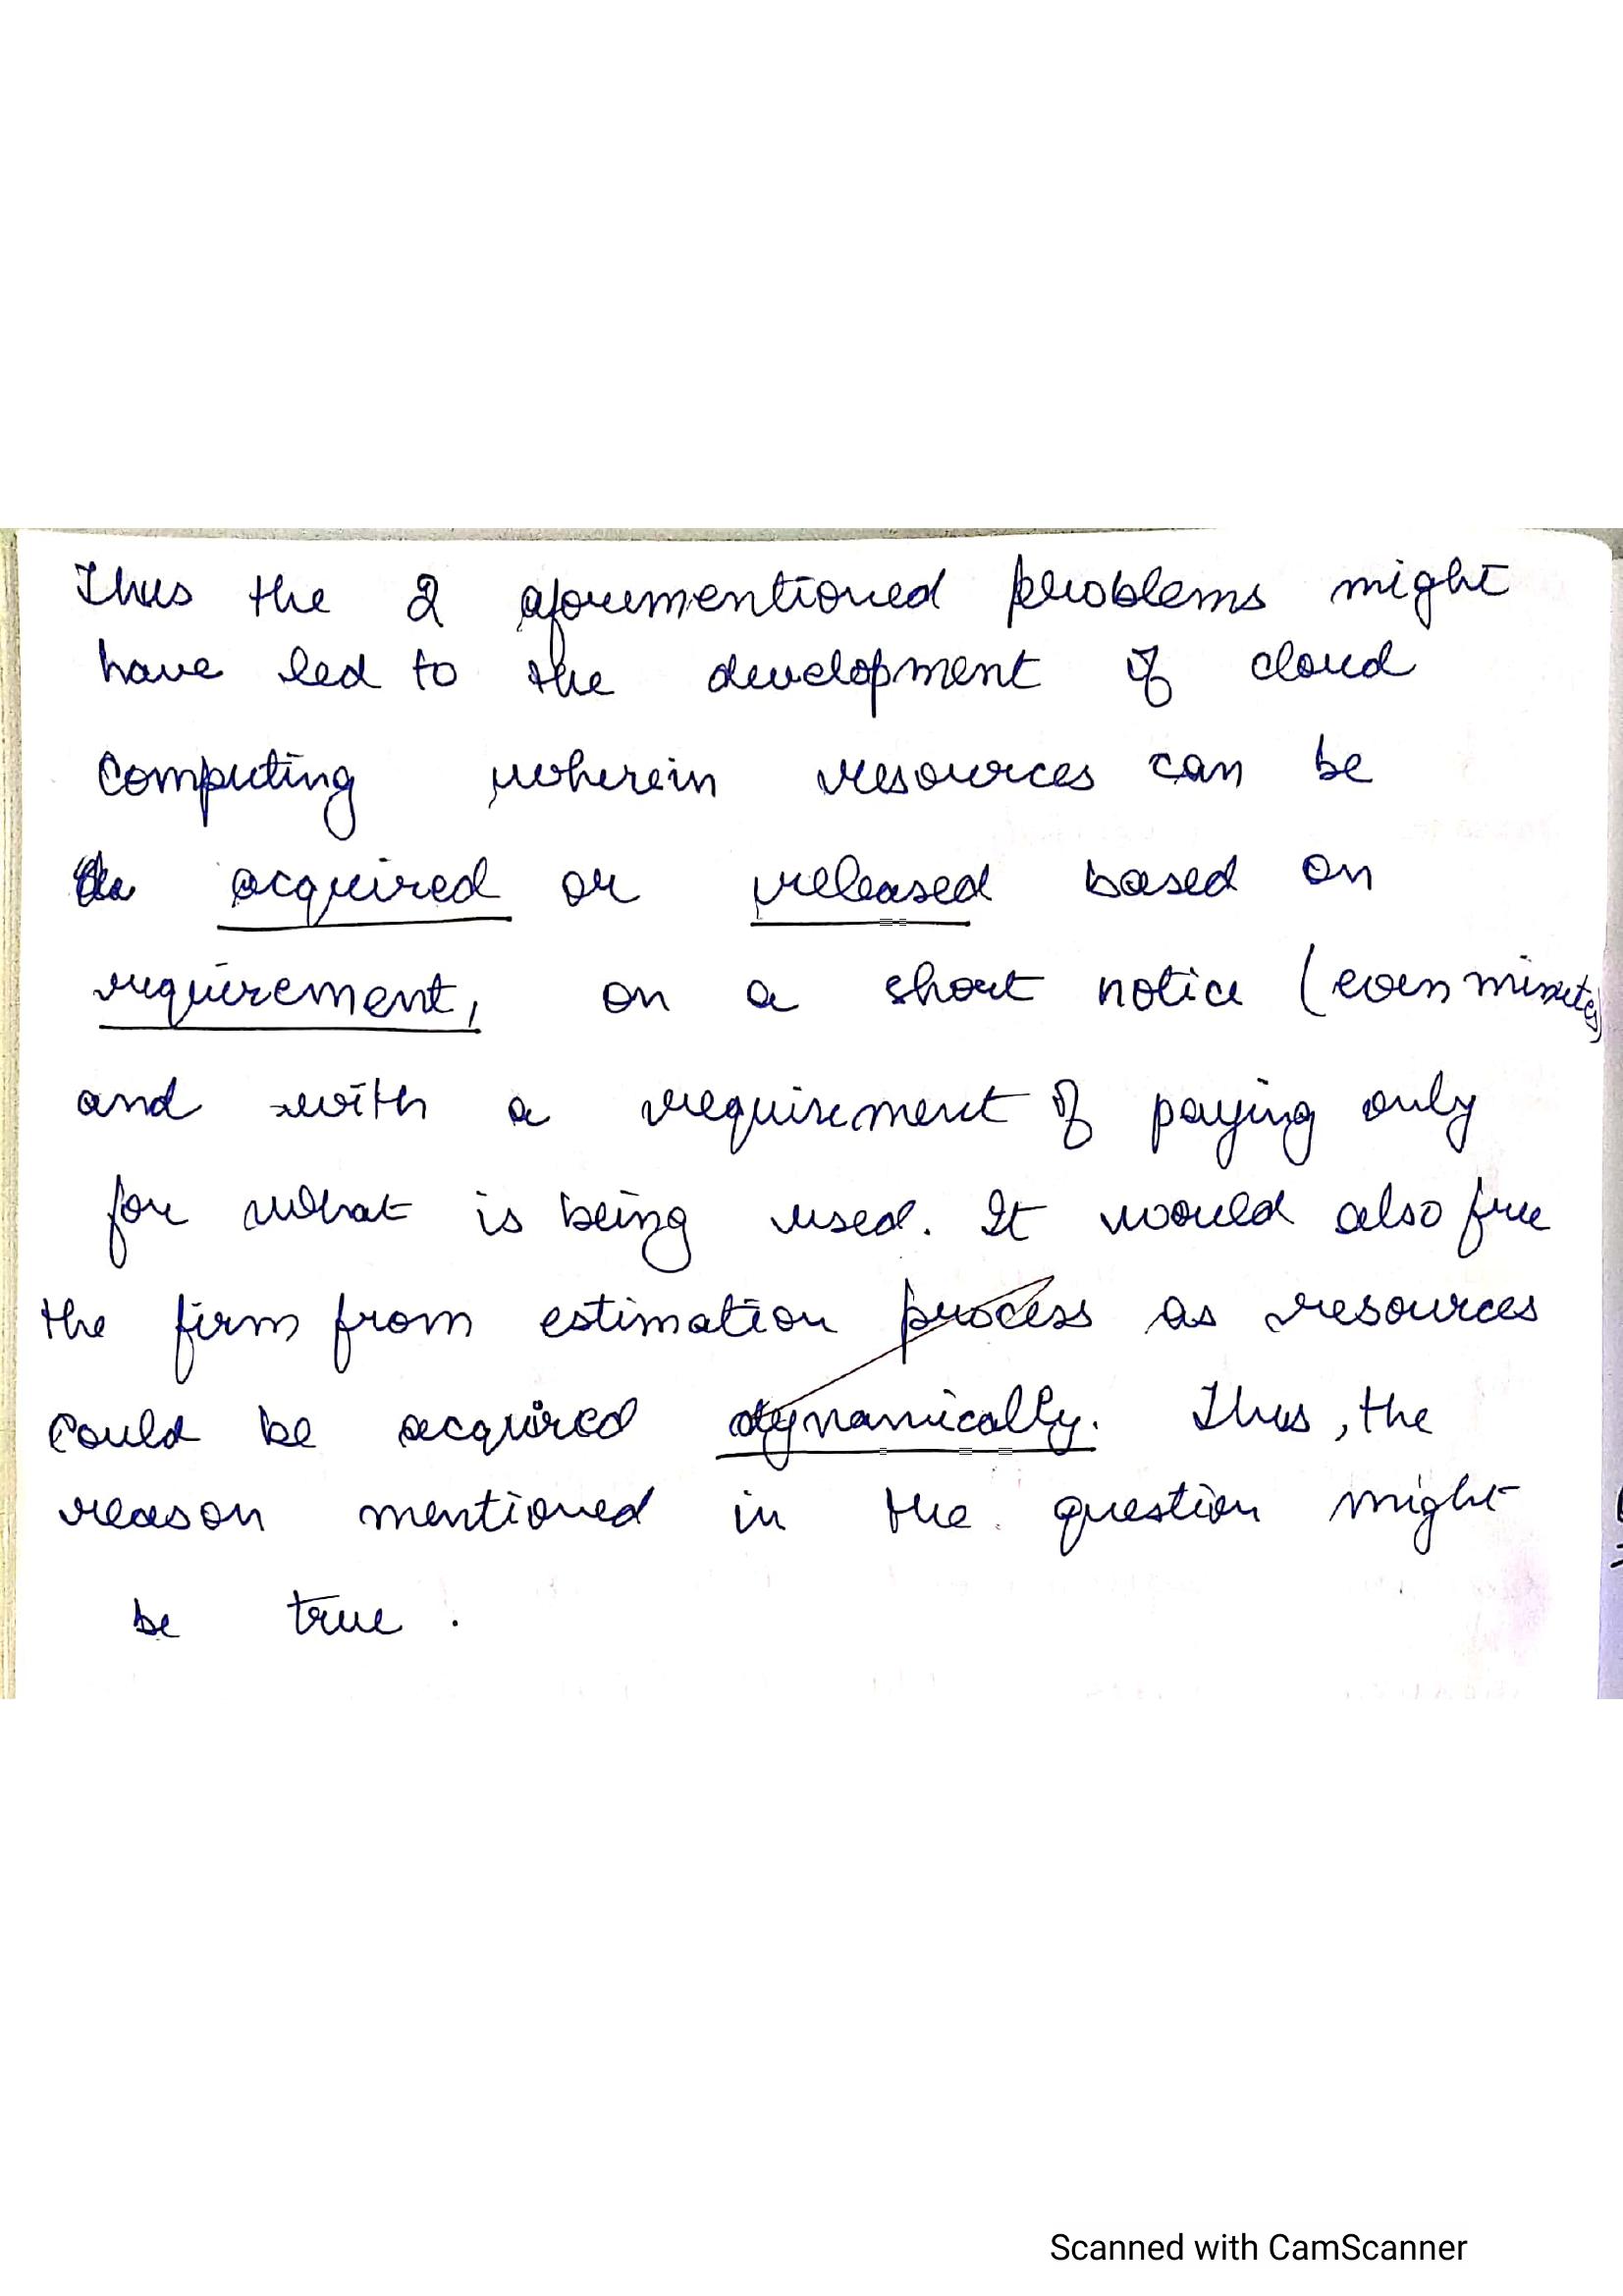 Thus the 2 aforementioned problems might
have led to the development of cloud
computing wherein resources can be
acquired or released based on
requirement, on a short notice (even minutes)
and with a requirement of paying only
for what is being used. It would also free
the firm from estimation process as resources
could be acquired dynamically. Thus, the
reason mentioned in the question might
be true.
Scanned with CamScanner